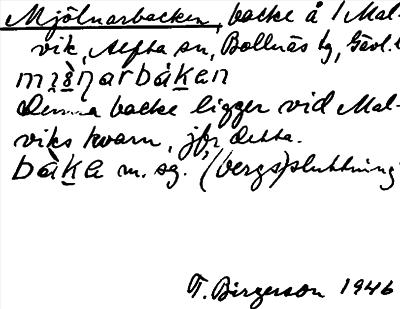 Mjölnarbacken, backe å 1 Mal-
vik, Alfta sn, Bollnäs tg, Gävl.l
Denna backe ligger vid Mal-
viks kvarn, jfr detta.
m. sg. (bergs)sluttning
T. Birgerson 1946